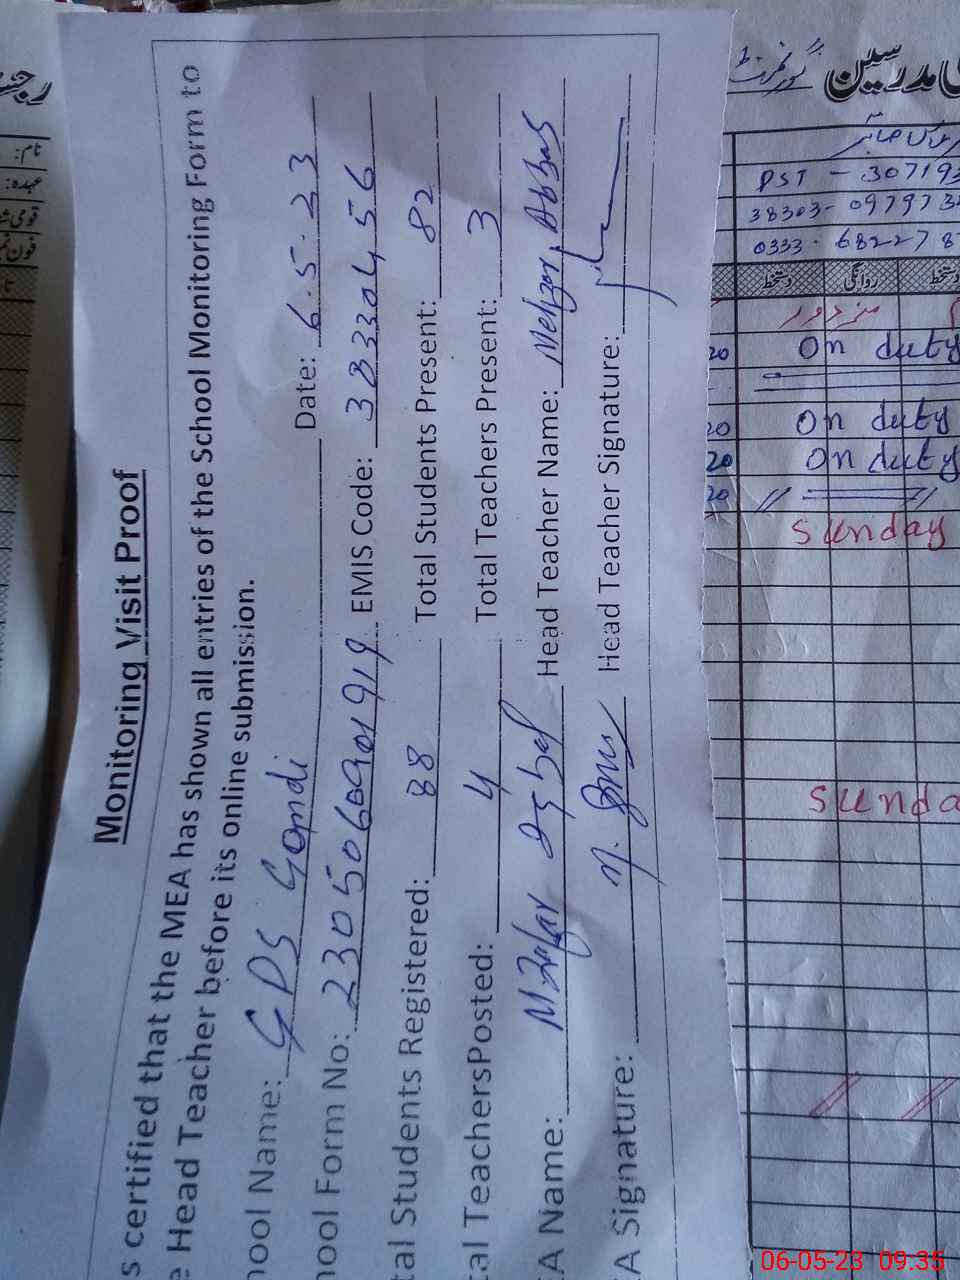 Monitoring Visit Proof
s certified that the MEA has shown all entries of the School Monitoring Form to
e Head Teacher before its online submission.
hool Name: GPS Gondi Date: 6.5.23
hool Form No: EMIS Code: 38330456
tal Students Registered: 88 Total Students Present: 82
tal TeachersPosted: 4 Total Teachers Present: 3
A Name: Head Teacher Name: Abbas
A Signature: Head Teacher Signature:
رجسٹ
نام:
عہدہ:
قومی
فون
مدرسین گورنمنٹ
PST - 307193
38303-097973
0333-682278
دستخط روانگی دستخط
20 On duty
20 On duty
20 On duty
20
Sunday
Sunda
06-05-23 09:35